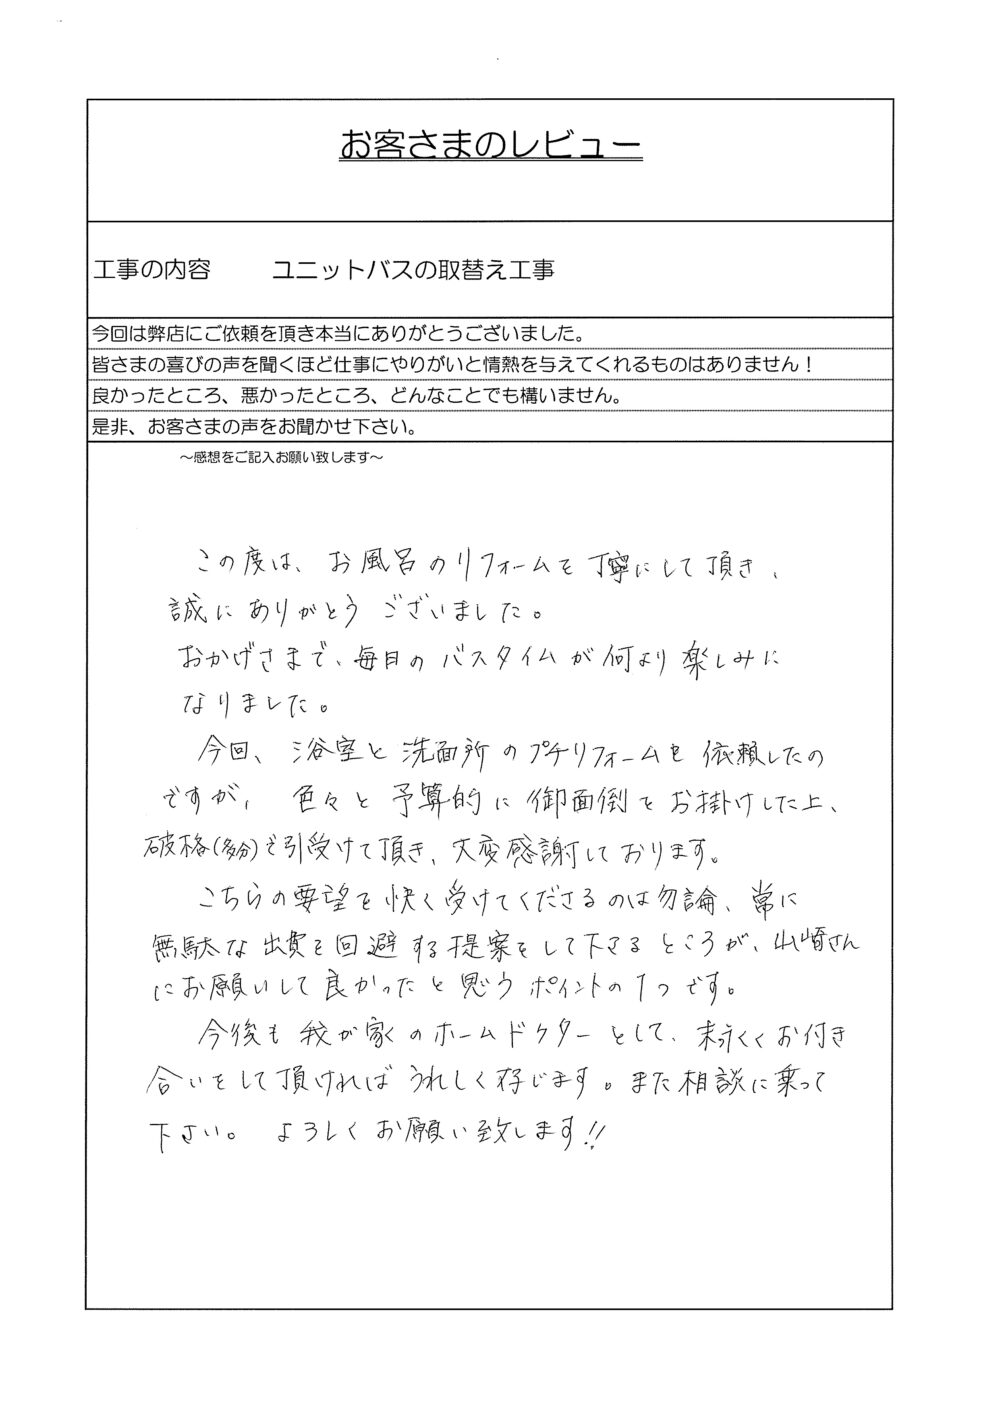 お客さまのレビュー
工事の内容　　ユニットバスの取替え工事
今回は弊店にご依頼を頂き本当にありがとうございました。
皆さまの喜びの声を聞くほど仕事にやりがいと情熱を与えてくれるものはありません！
良かったところ、悪かったところ、どんなことでも構いません。
是非、お客さまの声をお聞かせ下さい。
～感想をご記入お願い致します～
この度は、お風呂のリフォームを丁寧にして頂き、
誠にありがとうございました。
おかげさまで、毎日のバスタイムが何より楽しみに
なりました。
今回、浴室と洗面所のプチリフォームを依頼したの
ですが、色々と予算的に御面倒をお掛けした上、
破格(多分)で引受けて頂き、大変感謝しております。
こちらの要望を快く受けてくださるのは勿論、常に
無駄な出費を回避する提案をして下さるところが、山崎さん
にお願いして良かったと思うポイントの1つです。
今後も我が家のホームドクターとして、末永くお付き
合いをして頂ければうれしく存じます。また相談に乗って
下さい。よろしくお願い致します!!